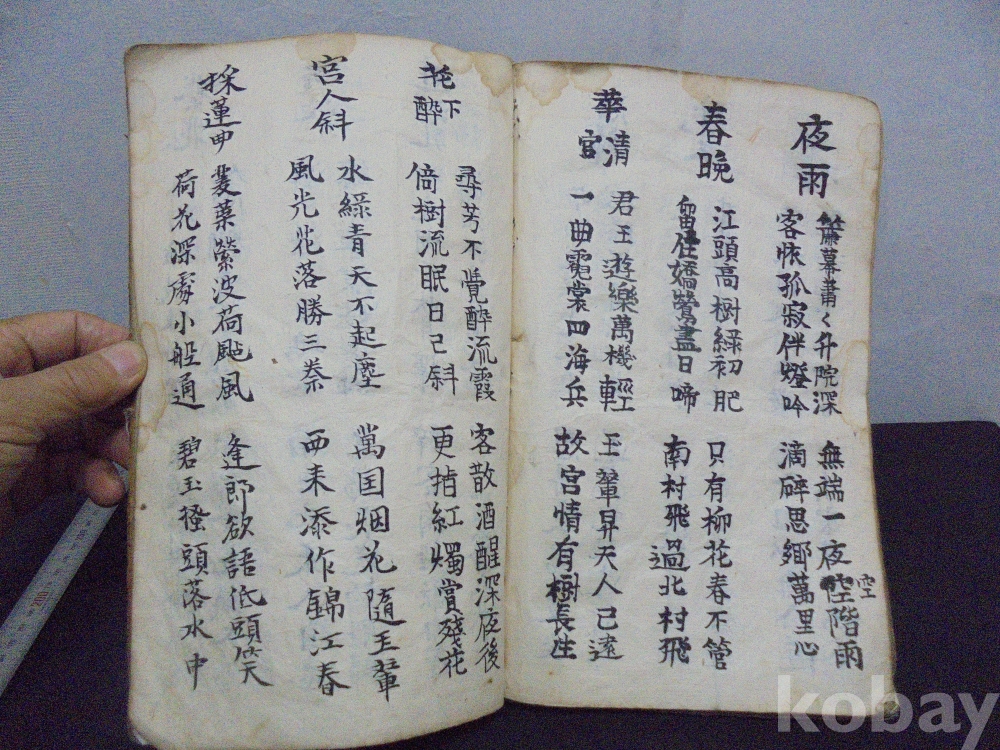 夜雨
簾幕蕭々升院深
客恢孤寂伴燈吟
無端一夜空階雨
空
滴碎思鄉萬里心
春晚
江頭高樹綠初肥
留住嬌鶯盡日啼
只有柳花春不管
南村飛過北村飛
華清宮
君王遊樂萬機輕
一曲霓裳四海兵
玉輦昇天人已遠
故宮情有樹長生
花下醉
尋芳不覺醉流霞
倚樹流眠日已斜
客散酒醒深夜後
更指紅燭賞殘花
宮人斜
水綠青天不起塵
風光花落勝三秦
萬国烟花隨玉輦
西来添作錦江春
採蓮曲
菱葉縈波荷颭風
荷花深處小船通
逢郎欲語低頭笑
碧玉搔頭落水中
kobay